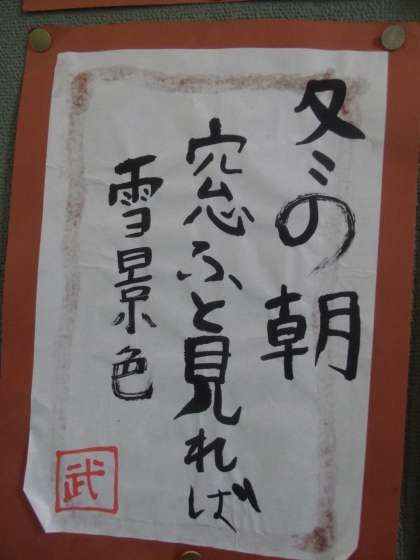 冬の朝
窓ふと見れば
雪景色
武